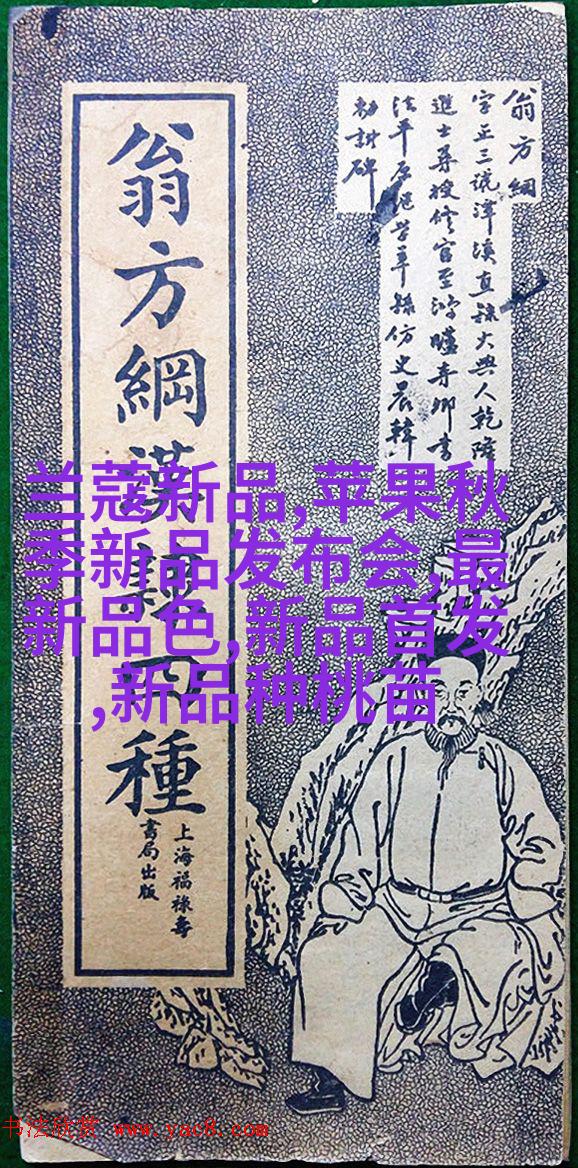 翁方綱
字正三號潭溪直隸大興人乾隆
進士尋授修官至鴻臚寺卿書
法平原繼學率隸仿史晨韓
勅封碑
翁方綱漢隸四種
上海福祿壽
書局出版
兰蔻新品,苹果秋
季新品发布会,最
新品色,新品首发
,新品种桃苗
书法欣赏 www.yac8.com